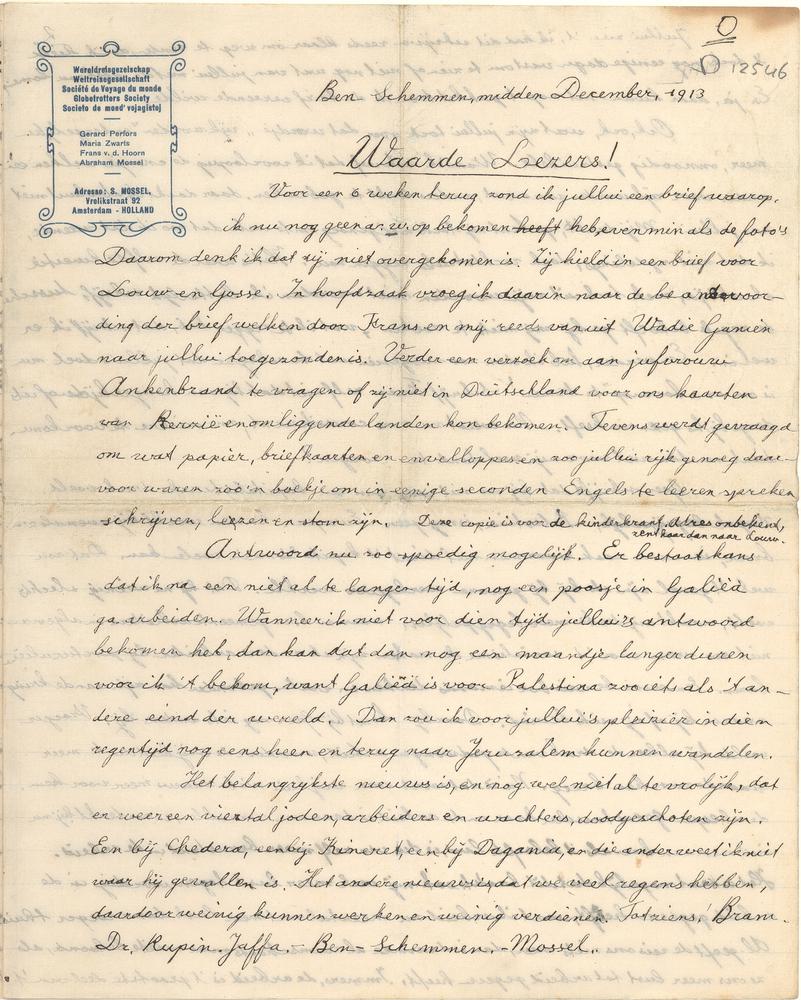 O
D 12546
Wereldreisgezelschap
Weltreisegesellschaft
Société de Voyage du monde
Globetrotters Society
Societo de mond' vojagistoj
Gerard Perfors
Maria Zwarts
Frans v. d. Hoorn
Abraham Mossel
Adresse: S. MOSSEL,
Vrolikstraat 92
Amsterdam - HOLLAND
Ben Schemmen, midden December, 1913
Waarde Lezers!
Voor een 6 weken terug zond ik jullui een brief waarop,
ik nu nog geen a. w. op bekomen heeft heb, evenmin als de foto's
Daarom denk ik dat zij niet overgekomen is. Zij hield in een brief voor
Louw en Gosse. In hoofdzaak vroeg ik daarin naar de be antwoor-
ding der brief welken door Frans en mij reeds vanuit Wadie Ganien
naar jullui toegezonden is. Verder een verzoek om aan jufvrouw
Ankenbrand te vragen of zij niet in Duitschland voor ons kaarten
van Perzië en omliggende landen kon bekomen. Tevens werdt gevraagd
om wat papier, briefkaarten en envelloppes en zoo jullui rijk genoeg daar-
voor waren zoo'n boekje om in eenige seconden Engels te leeren spreken
schrijven, leezen en stom zijn. Deze copie is voor de kinderkrant. Adres onbekend,
zent haar dan naar Louw.
Antwoord nu zoo spoedig mogelijk. Er bestaat kans
dat ik na een niet al te langer tijd, nog een poosje in Galiëa
ga arbeiden. Wanneer ik niet voor dien tijd jullui's antwoord
bekomen heb, dan kan dat dan nog een maandje langer duren
voor ik 't bekom, want Galiëa is voor Palestina zooiets als 't an-
dere eind der wereld. Dan zou ik voor jullui's pleizier in dien
regentijd nog eens heen en terug naar Jeruzalem kunnen wandelen.
Het belangrijkste nieuws is, en nog wel niet al te vrolijk, dat
er weer een viertal joden, arbeiders en wachters, doodgeschoten zijn.
Een bij Chedera, een bij Kineret, een bij Dagania, en die ander weet ik niet
waar hij gevallen is. Het andere nieuws is dat we veel regens hebben,
daardoor weinig kunnen werken en weinig verdienen. Totziens! Bram.
Dr. Rupin. Jaffa. - Ben - Schemmen. - Mossel.